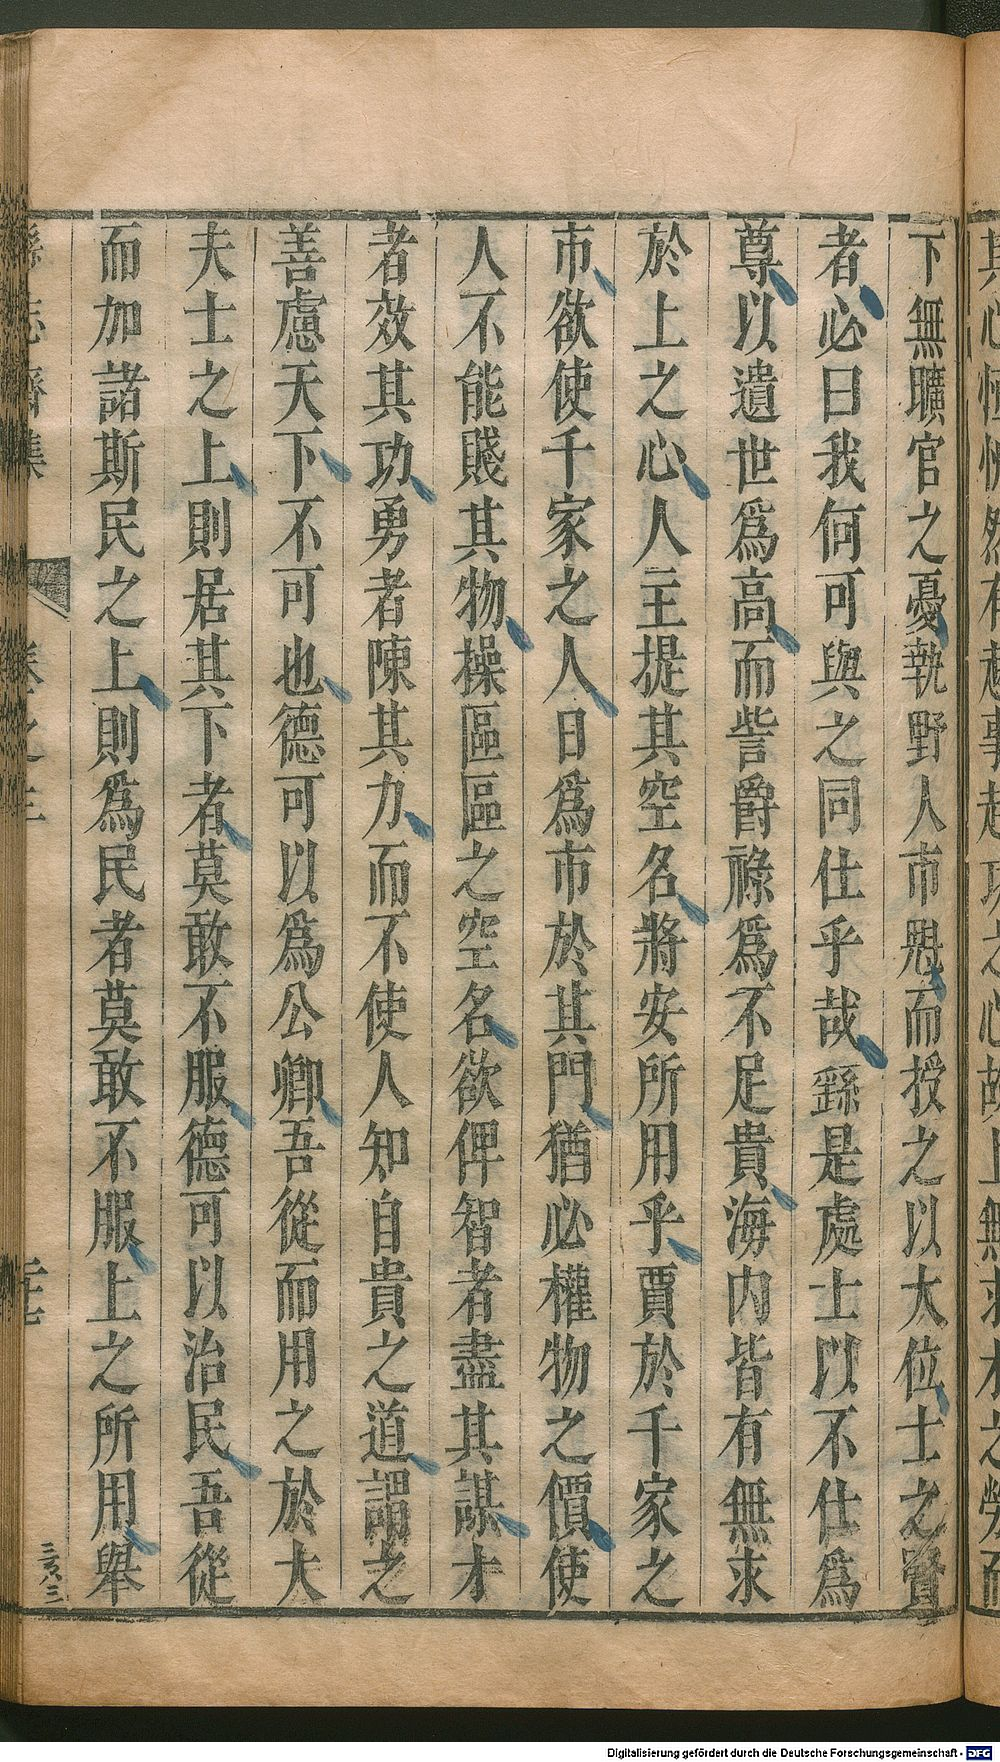 下無曠官之憂執野人市𠒋而授之以大位士之賢
者必曰我何可與之同仕乎哉繇是處士以不仕爲
尊以遺世爲高而訾爵祿爲不足貴海内皆有無求
於上之心人主提其空名將安所用乎賈於千家之
市欲使千家之人日爲市於其門猶必權物之價使
人不能賤其物操區區之空名欲俾智者盡其謀才
者效其功勇者陳其力而不使人知自貴之道謂之
善慮天下不可也德可以爲公卿吾從而用之於大
夫士之上則居其下者莫敢不服德可以治民吾從
而加諸斯民之上則爲民者莫敢不服上之所用舉
Digitalisierung gefördert durch die Deutsche Forschungsgemeinschaft - DFG